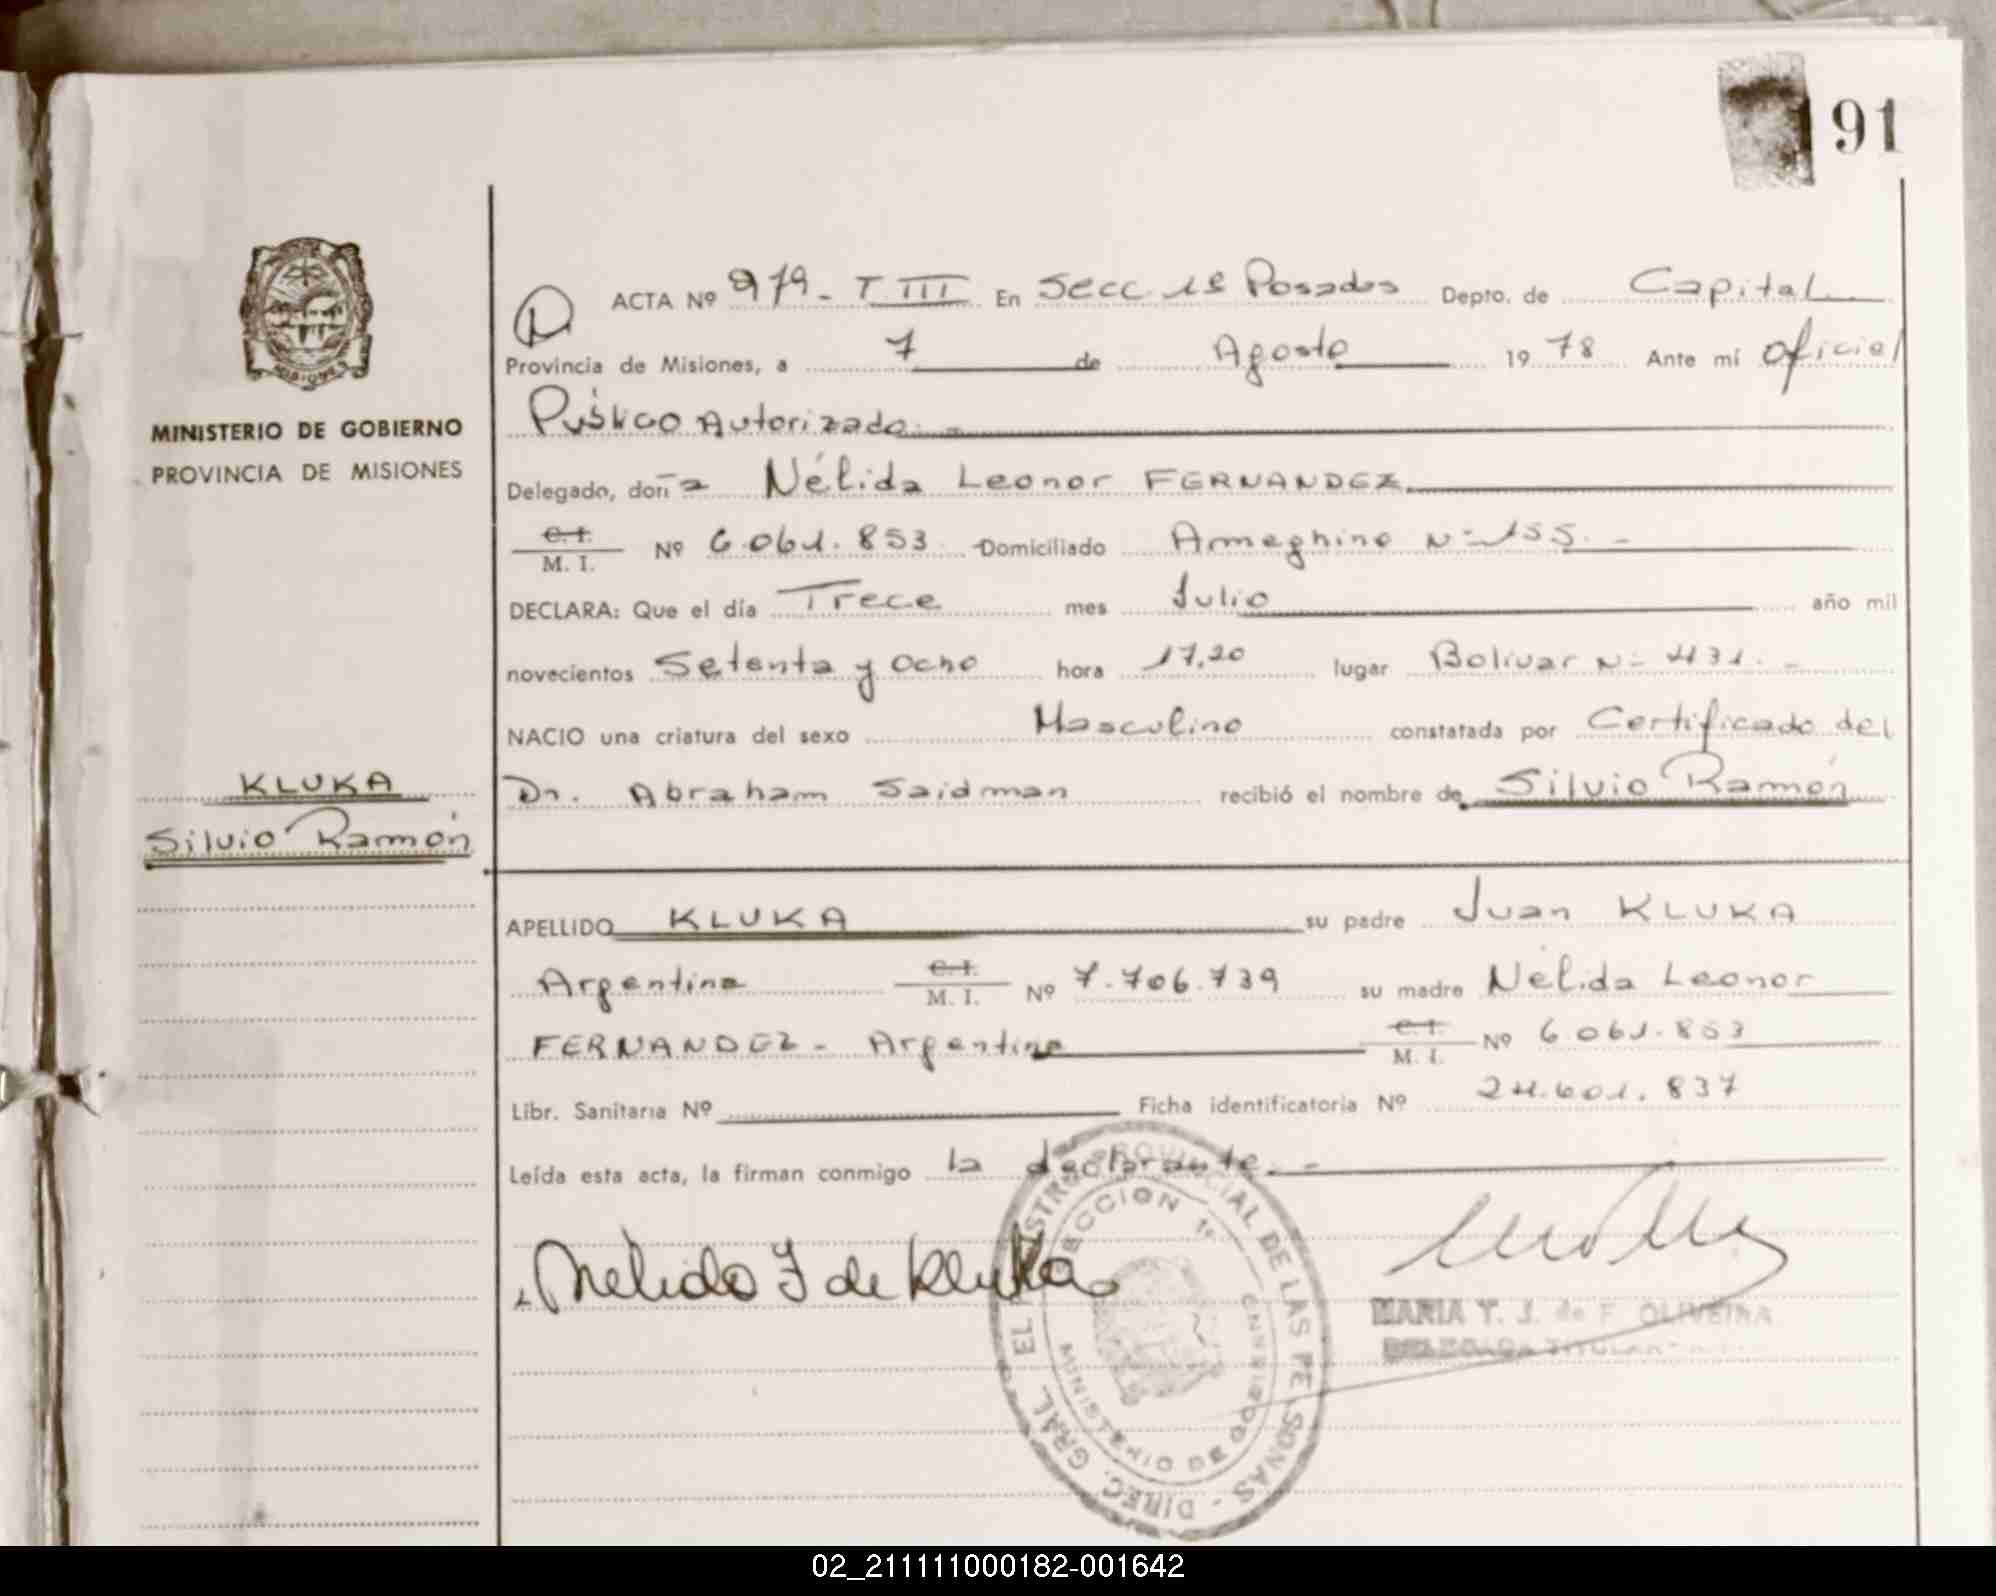 91
MINISTERIO DE GOBIERNO
PROVINCIA DE MISIONES
KLUKA
Silvio Ramón
ACTA Nº 979 - T III En Secc. 1ª Posadas Depto. de Capital
Provincia de Misiones, a 7 de Agosto 1978 Ante mí Oficial
Público Autorizado. -
Delegado, doña Nélida Leonor FERNANDEZ
C.I. / M. I. Nº 6.061.853 Domiciliado Ameghino Nº 155. -
DECLARA: Que el día Trece mes Julio año mil
novecientos Setenta y Ocho hora 17,20 lugar Bolívar Nº 431. -
NACIO una criatura del sexo Masculino constatada por Certificado del
Dr. Abraham Saidman recibió el nombre de Silvio Ramón
APELLIDO KLUKA su padre Juan KLUKA
Argentino C.I. / M. I. Nº 7.706.739 su madre Nélida Leonor
FERNANDEZ - Argentina C.I. / M. I. Nº 6.061.853
Libr. Sanitaria Nº Ficha identificatoria Nº 24.601.837
Leída esta acta, la firman conmigo la declarante. -
Nélida F de Kluka
MARIA T. J. de F. OLIVEIRA
DELEGADA TITULAR
DIREC. GRAL. DEL REGISTRO PROVINCIAL DE LAS PERSONAS -
SECCION 1ª
MINISTERIO DE GOBIERNO
02_211111000182-001642